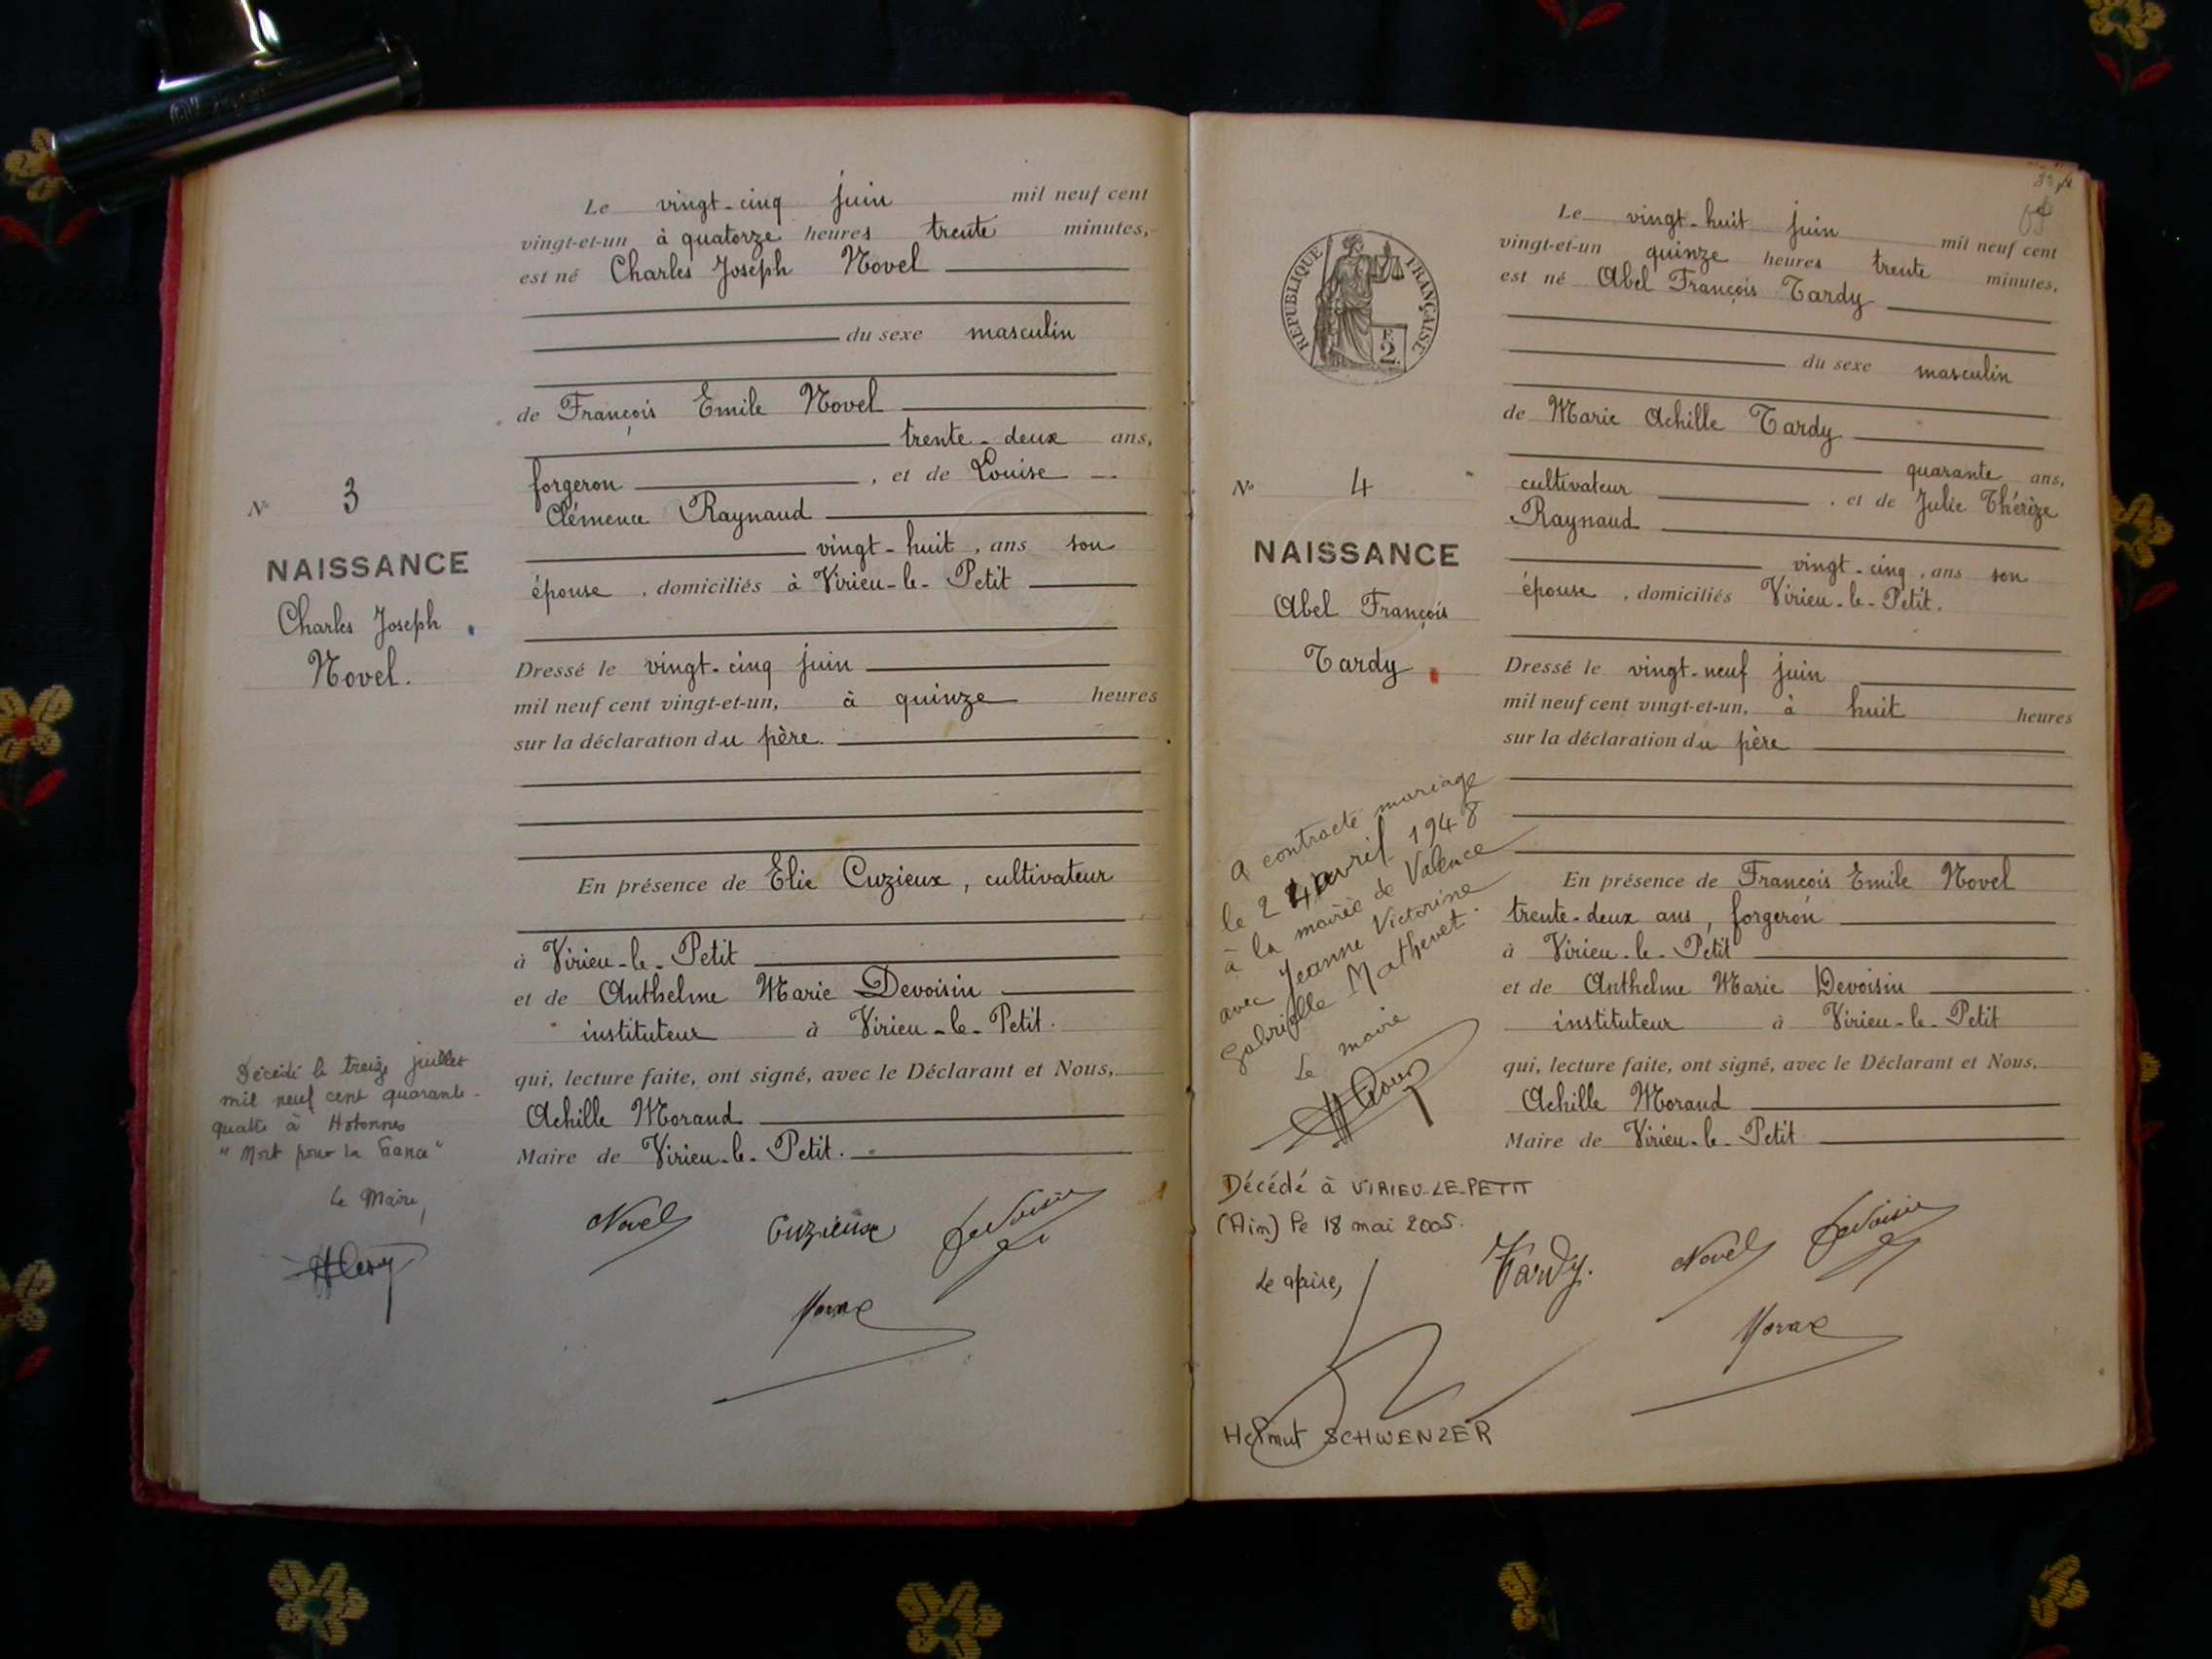 Le vingt-cinq juin mil neuf cent
vingt-et-un à quatorze heures trente minutes,
est né Charles Joseph Novel
du sexe masculin
de François Emile Novel
trente-deux ans,
forgeron, et de Louise
Clémence Raynaud
vingt-huit, ans son
épouse, domiciliés à Virieu-le-Petit
Dressé le vingt-cinq juin
mil neuf cent vingt-et-un, à quinze heures
sur la déclaration du père.
En présence de Elie Cuzieux, cultivateur
à Virieu-le-Petit
et de Anthelme Marie Devoisin
instituteur à Virieu-le-Petit.
qui, lecture faite, ont signé, avec le Déclarant et Nous,
Achille Morand
Maire de Virieu-le-Petit.
Novel Cuzieux Devoisin
N° 3
NAISSANCE
Charles Joseph
Novel.
Décédé le treize juillet
mil neuf cent quarante-
quatre à Hotonnes
"Mort pour la France"
Le Maire,
Le vingt-huit juin mil neuf cent
vingt-et-un quinze heures trente minutes,
est né Abel François Tardy
du sexe masculin
de Marie Achille Tardy
quarante ans,
cultivateur, et de Julie Thérèze
Raynaud
vingt-cinq, ans son
épouse, domiciliés Virieu-le-Petit.
Dressé le vingt-neuf juin
mil neuf cent vingt-et-un, à huit heures
sur la déclaration du père
En présence de François Emile Novel
trente-deux ans, forgeron
à Virieu-le-Petit
et de Anthelme Marie Devoisin
instituteur à Virieu-le-Petit
qui, lecture faite, ont signé, avec le Déclarant et Nous,
Achille Morand
Maire de Virieu-le-Petit
Tardy. Novel Devoisin
REPUBLIQUE FRANÇAISE
F.
2.
N° 4
NAISSANCE
Abel François
Tardy
A contracté mariage
le 24 avril 1948
à la mairie de Valence
avec Jeanne Victorine
Gabrielle Mathevet.
Le maire
Décédé à VIRIEU-LE-PETIT
(Ain) le 18 mai 2005.
Le Maire,
Helmut SCHWENZER